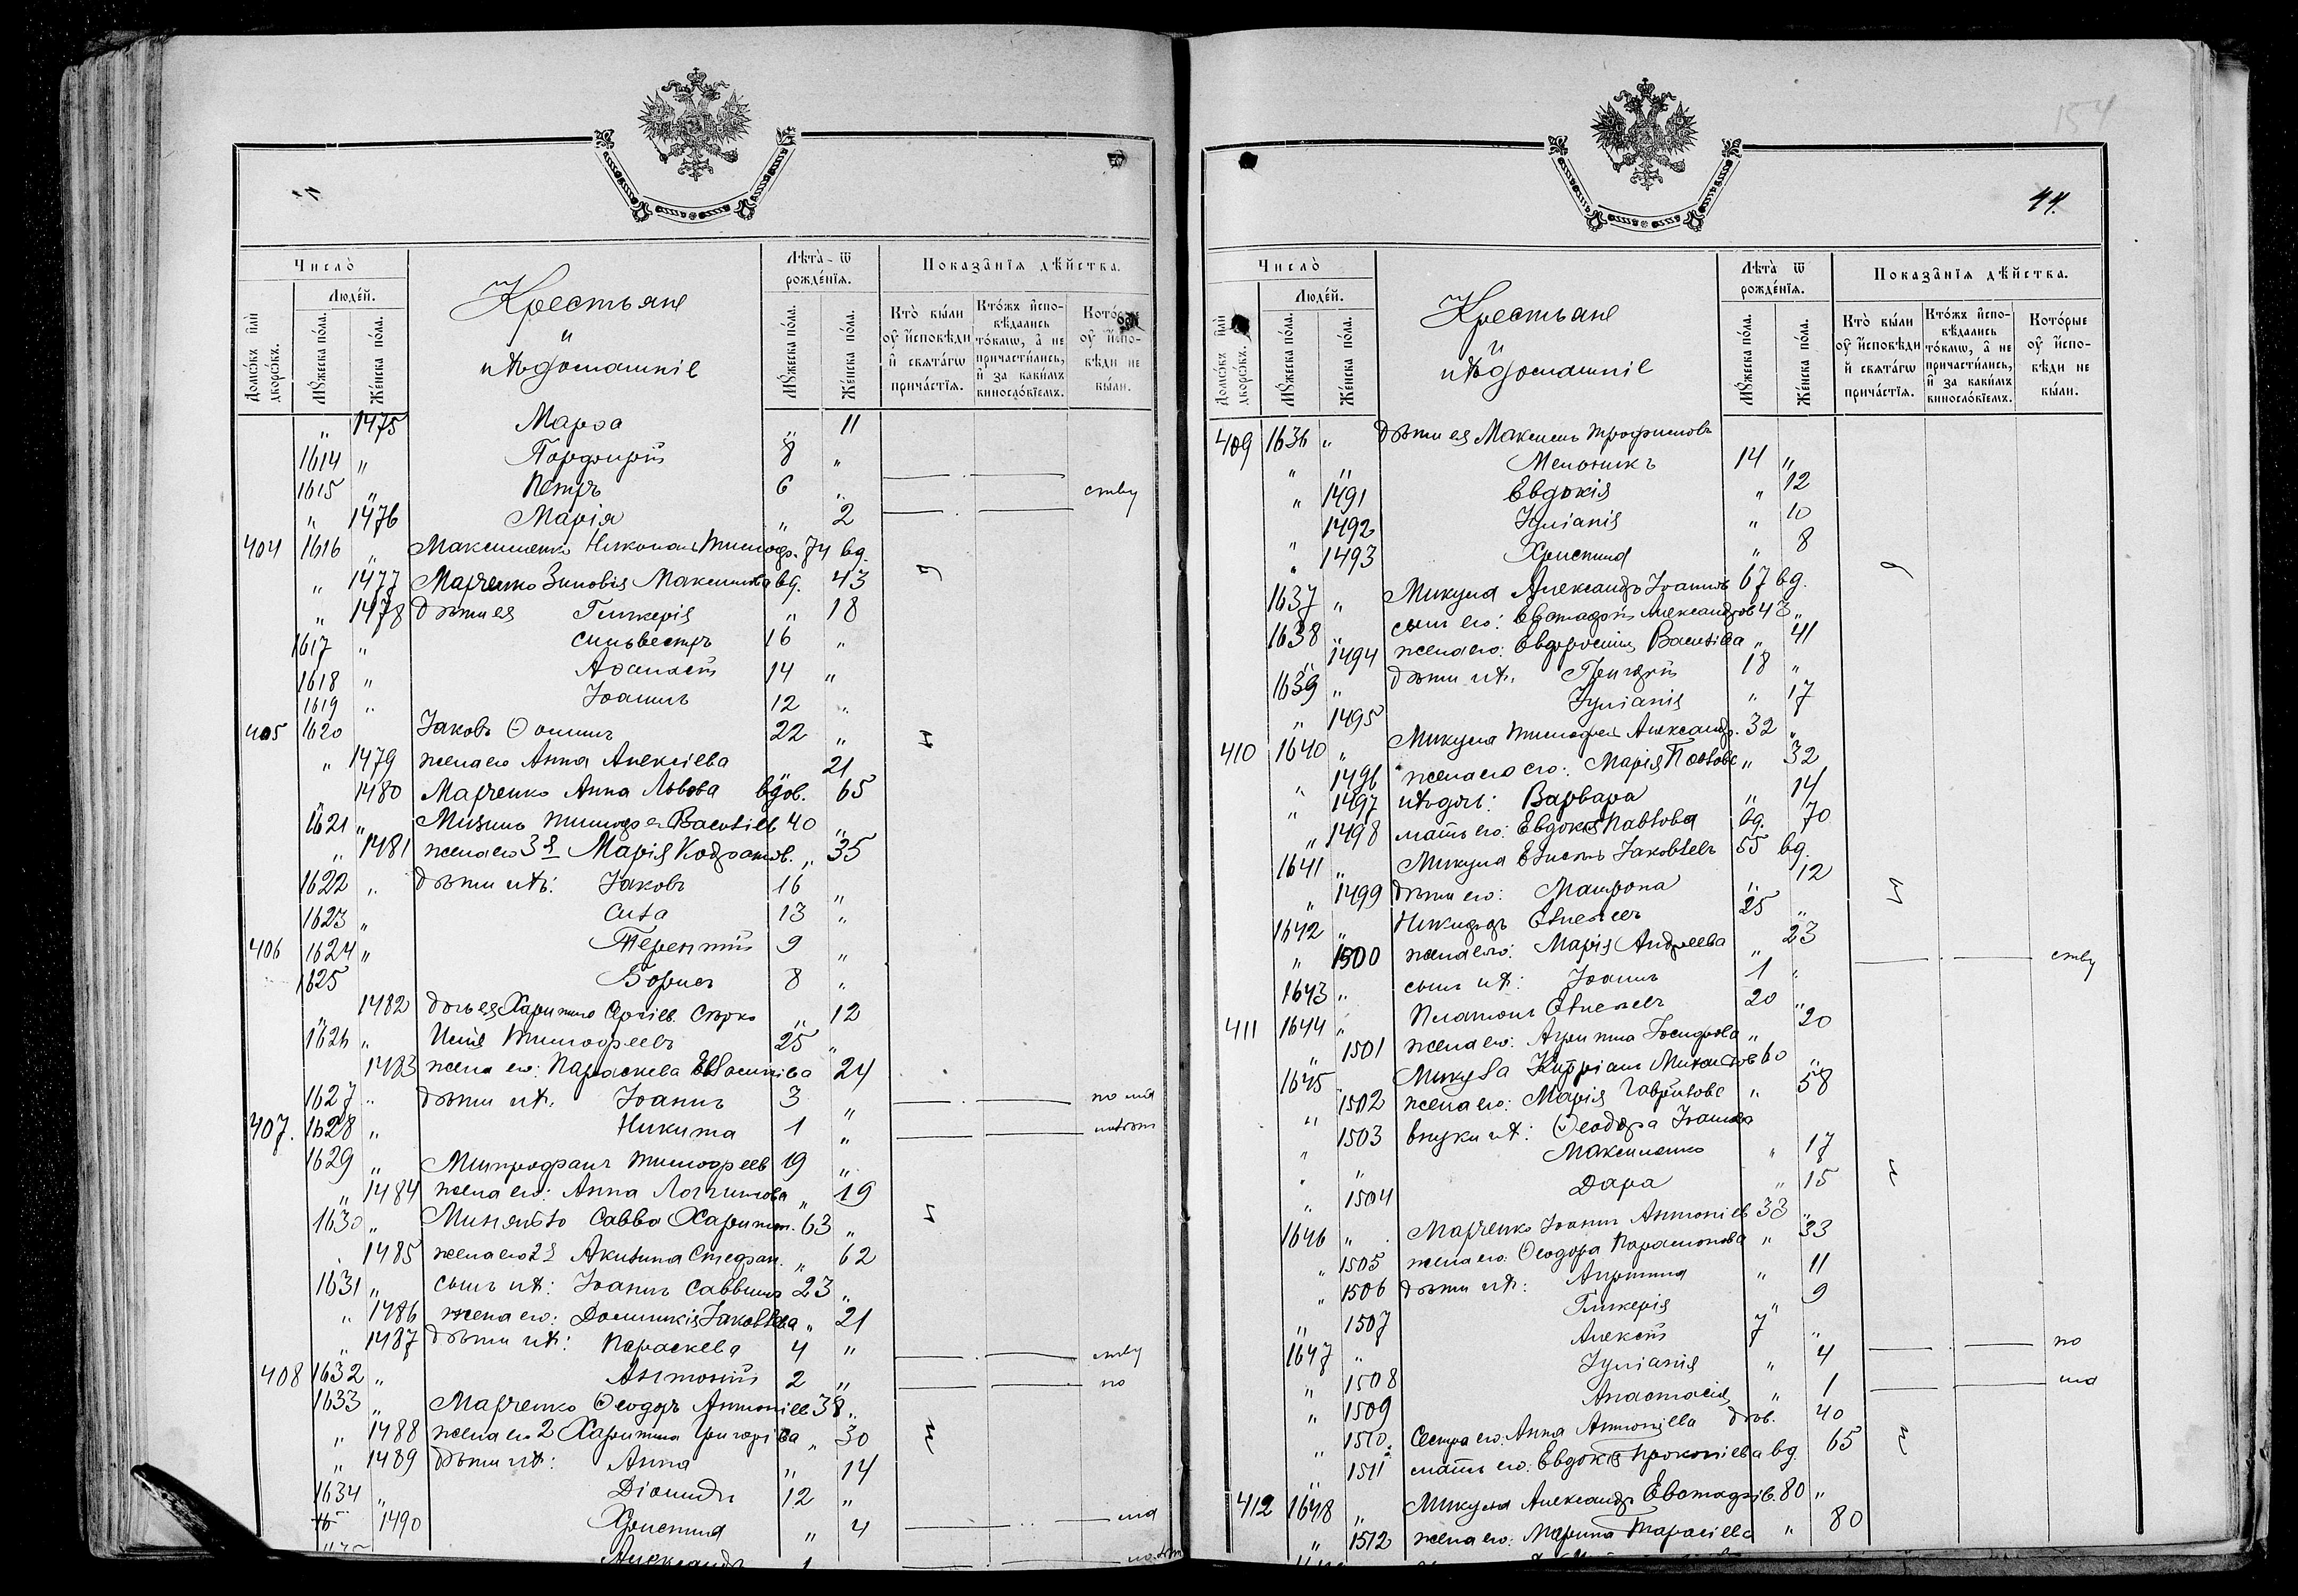 Число̀
Людéй.
Домѡ́въ и҆лѝ дворѡ́въ.
Мꙋ́жеска по́ла.
Же́нска по́ла.
Крестьяне
и
ихъ домашніе
Лѣта̀ ѿ рожде́нїѧ.
Мꙋ́жеска по́ла.
Же́нска по́ла.
Показа̑нїѧ дѣ́йства.
Кто̀ бы́ли оу҆ и҆сповѣ́ди и҆ свѧта́гѡ прича́стїѧ.
Кто́жъ и҆спо-вѣ́дались то́кмѡ, а҆ не причасти́лись, и҆ за каки́мъ винослóвїемъ.
Кото́рые оу҆ и҆спо-вѣ́ди не бы́ли.
" 1475 Марѳа " 11
1614 " Порфирій 8 "
1615 " Петръ 6 " ству
" 1476 Марія " 2
404 1616 " Максименко Никонъ Тимоф. 74 вд.
" 1477 Марченко Зиновія Максимова вд. 43
" 1478 дѣти ея Гликерія " 18
1617 " Сильвестръ 16 "
1618 " Аѳанасій 14 "
1619 " Іоаннъ 12 "
405 1620 Іаковъ Ѳоминъ 22 "
" 1479 жена его Анна Алексіева " 21
1480 Марченко Анна Львова вдов. 65
1621 " Тимоѳей Василіев 40 "
" 1481 жена его 3я Марія Кодратов. " 35
1622 " дѣти ихъ: Іаковъ 16 "
1623 " Сила 13 "
406 1624 " Терентій 9 "
1625 Борисъ 8 "
" 1482 дочь ея Харитина Сергіев. Сѣрко " 12
1626 " Илія Тимоѳеевъ 25 "
1483 жена его: Параскева 24
1627 " дѣти ихъ: Іоаннъ 3 " по мал
407. 1628 " Никита 1 " лѣтст
1629 " Митрофанъ Тимоѳеев 19 "
" 1484 жена его: Анна Логгинова " 19
1630 " Савва Харитон. 63 "
1485 жена его 2я Акилина Стефан. " 62
1631 " сынъ ихъ: Іоаннъ Саввинъ 23 "
" 1486 жена его: Домникія Іаковлева " 21
" 1487 дѣти ихъ: Параскева 4 " ству
408 1632 " Антоній 2 " по
1633 " Марченко Ѳеодоръ Антоніев 38 "
" 1488 жена его 2 Харитина Григоріева " 30
" 1489 дѣти ихъ: Анна " 14
1634 " Діомидъ 12 "
1490 Христина " 4 мал
Александръ 1
154
44.
Число̀
Людéй.
Домѡ́въ и҆лѝ дворѡ́въ.
Мꙋ́жеска по́ла.
Же́нска по́ла.
Крестьяне
и
ихъ домашніе
Лѣта̀ ѿ рожде́нїѧ.
Мꙋ́жеска по́ла.
Же́нска по́ла.
Показа̑нїѧ дѣ́йства.
Кто̀ бы́ли оу҆ и҆сповѣ́ди и҆ свѧта́гѡ прича́стїѧ.
Кто́жъ и҆спо-вѣ́дались то́кмѡ, а҆ не причасти́лись, и҆ за каки́мъ винослóвїемъ.
Кото́рые оу҆ и҆спо-вѣ́ди не бы́ли.
409 1636 " дѣти ея Максимъ Трофимовъ
" " Мельникъ 14 "
" 1491 Евдокія " 12
1492 Іуліанія " 10
" 1493 Христина " 8
1637 " Микула Александръ Іоаннов 67 вд.
1638 " сынъ его: Евстафій Александров 43 "
" 1494 жена его: Евфросинія Василіева " 41
1639 " дѣти ихъ: Григорій 18 "
" 1495 Іуліанія " 17
410 1640 " Микула Тимоѳей Александр. 32 "
" 1496 жена его его: Марія Павлова " 32
" 1497 ихъ дочь: Варвара " 14
" 1498 мать его: Евдокія Павлова вд. 70
1641 " Микула Елисей Іаковлевъ 55 вд.
" 1499 дѣти его: Матрона " 12
1642 " Никифоръ Елисеевъ 25 "
" 1500 жена его: Марія Андреева " 23
1643 " сынъ ихъ: Іоаннъ 1 " ству
411 1644 " Платонъ Елисеевъ 20 "
" 1501 жена его: Агрипина Іосифова " 20
1645 Микула Кипріанъ Михайлов 60 "
" 1502 жена его: Марія Гаврилова " 58
" 1503 внуки ихъ: Ѳеодора Іоанова
" " Максименко " 17
" 1504 Дарія " 15
1646 " Марченко Іоаннъ Антоніев 33 "
" 1505 жена его: Ѳеодора Парамонова " 33
" 1506 дѣти ихъ: Агрипина " 11
" 1507 Гликерія " 9
1647 " Алексій 7 "
" 1508 Іуліанія " 4 по
" 1509 Анастасія " 1 мал
" 1510 Сестра его: Анна Антоніева дѣв. 40
" 1511 мать его: Евдокія Прокопіева вд. 65
412 1648 " Микула Александръ Евстафіев. 80 "
" 1512 жена его: Марина Тарасіева " 80